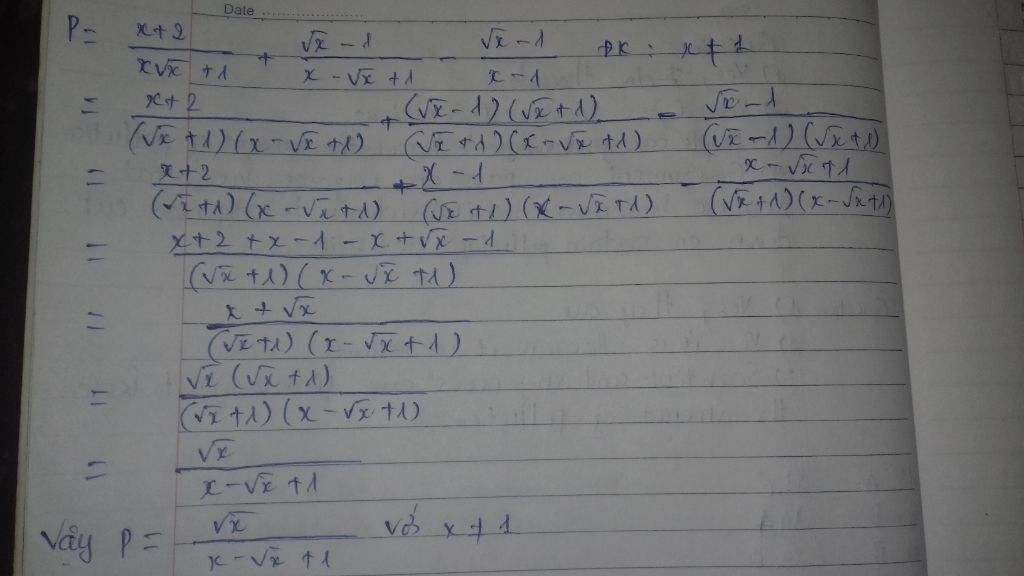 Date
P = (x+2)/(x√x +1) + (√x −1)/(x −√x +1) − (√x −1)/(x −1) ĐK : x ≠ 1
= (x+2)/((√x +1)(x −√x +1)) + ((√x −1)(√x +1))/((√x +1)(x −√x +1)) − (√x −1)/((√x −1)(√x +1))
= (x+2)/((√x +1)(x −√x +1)) + (x −1)/((√x +1)(x −√x +1)) − (x −√x +1)/((√x +1)(x −√x +1))
= (x+2 +x −1 −x +√x −1)/((√x +1)(x −√x +1))
= (x + √x)/((√x +1)(x −√x +1))
= (√x (√x +1))/((√x +1)(x −√x +1))
= √x/(x −√x +1)
Vậy P = √x/(x −√x +1) với x ≠ 1